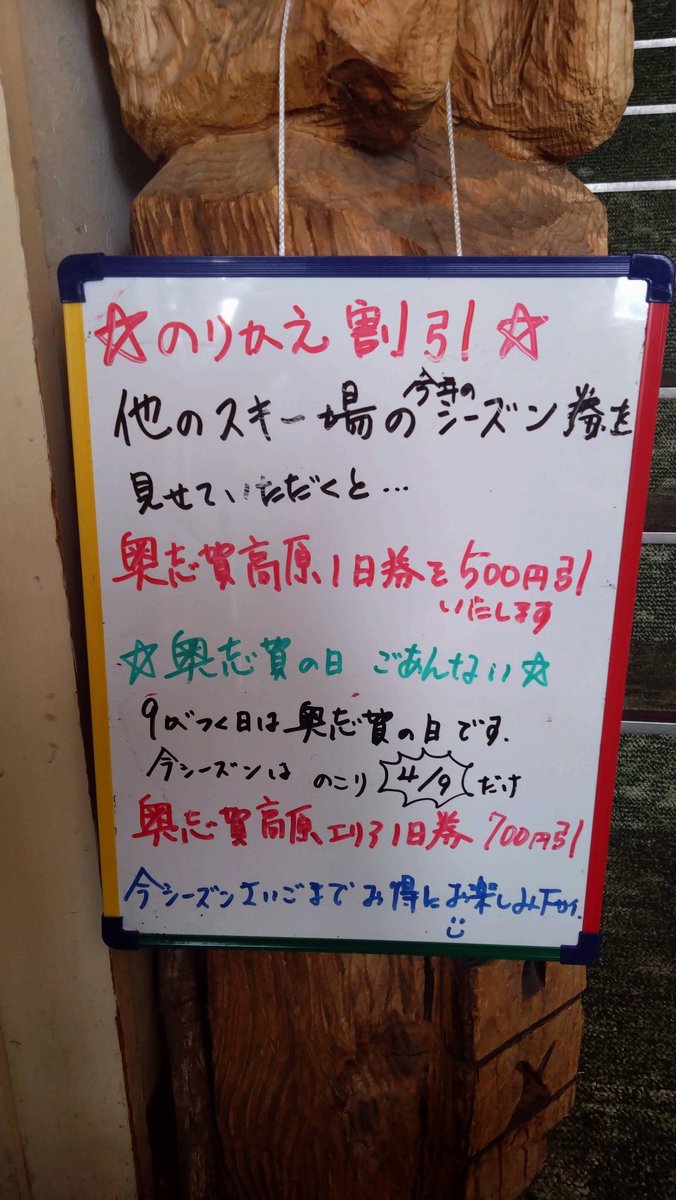 ☆のりかえ割引☆
他のスキー場の今年のシーズン券を
見せていただくと…
奥志賀高原1日券を500円引
いたします
☆奥志賀の日 ごあんない☆
9がつく日は奥志賀の日です.
今シーズンは のこり 4/9 だけ
奥志賀高原エリア1日券 700円引
今シーズンさいごまでお得にお楽しみ下サイ.